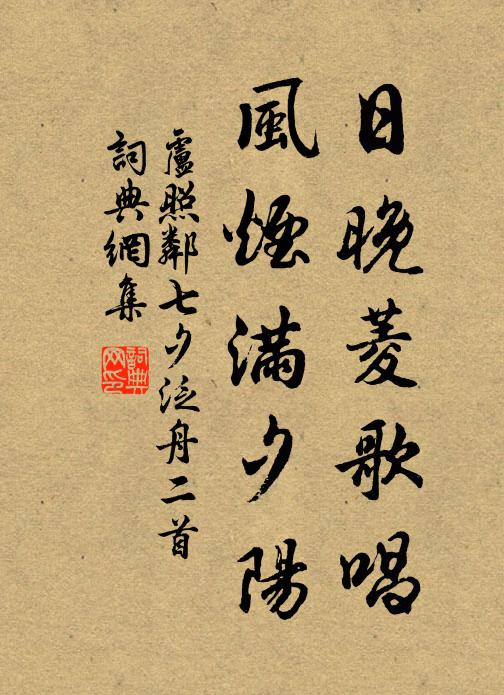 日晚菱歌唱
風煙滿夕陽
盧照鄰七夕泛舟二首
詞典網集
詞典网印